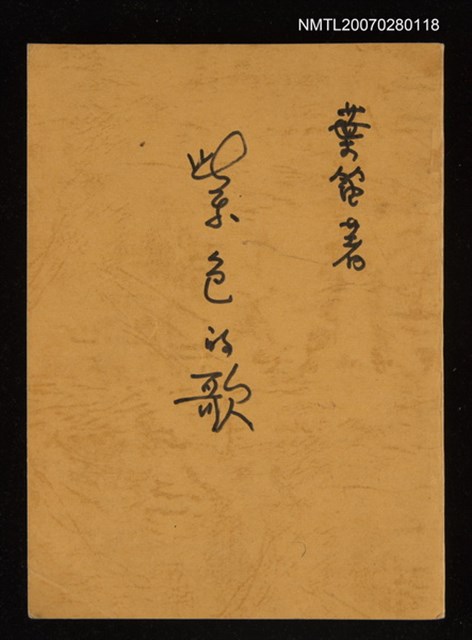 NMTL20070280118
葉笛著
紫色的歌